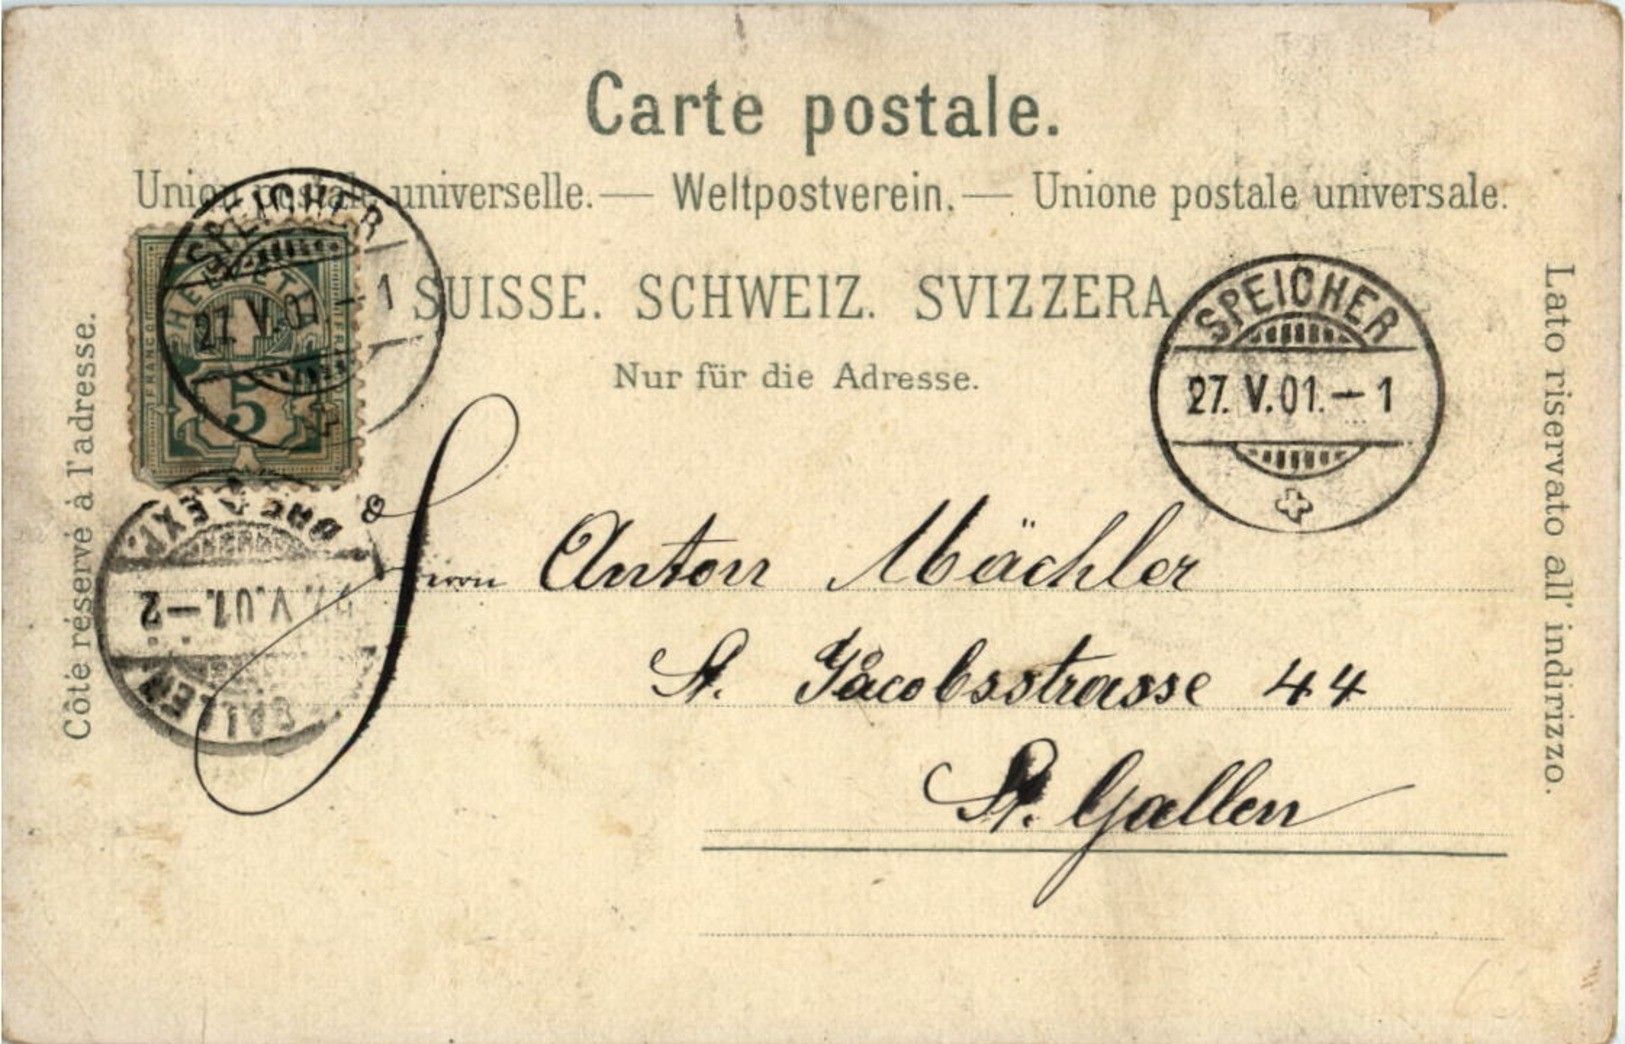 Carte postale.
Union postale universelle. — Weltpostverein. — Unione postale universale.
SUISSE. SCHWEIZ. SVIZZERA
Nur für die Adresse.
Côté réservé à l'adresse.
Lato riservato all' indirizzo.
SPEICHER
27. V. 01. – 1
HELVETIA
FRANCO
5
SPEICHER
27. V. 01. – 1
GALLEN
V. 01. – 2
EXP.
Herrn Anton Mächler
St. Jacobsstrasse 44
St. Gallen